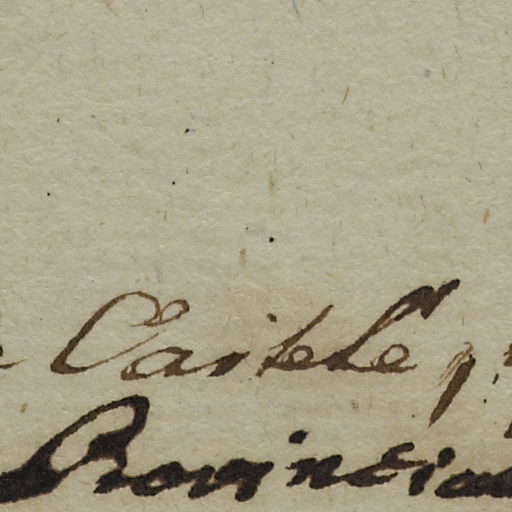 Castele,
Provincia